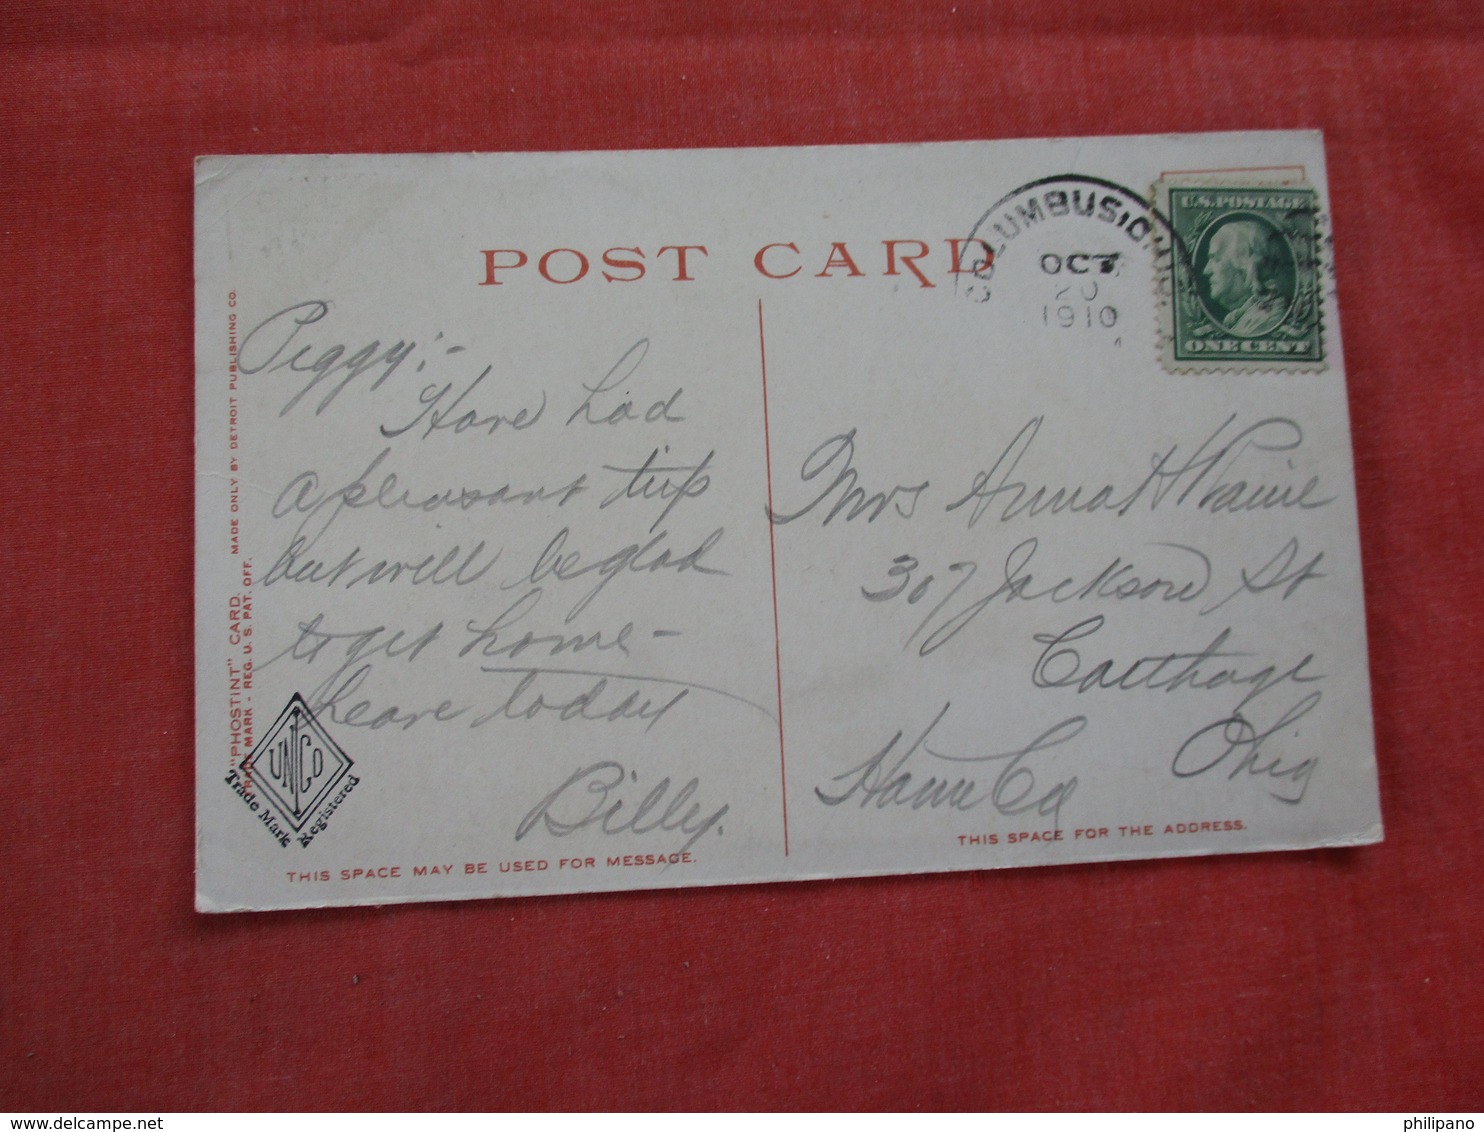 POST CARD
COLUMBUS, O
OCT
20
1910
U.S. POSTAGE
ONE CENT
Peggy:-
Have had
a pleasant trip
but will be glad
to get home -
Leave today
Billy.
Mrs Anna H Paine
307 Jackson St
Carthage
Ohio
Ham Co
THIS SPACE MAY BE USED FOR MESSAGE.
THIS SPACE FOR THE ADDRESS.
"PHOSTINT" CARD. MADE ONLY BY DETROIT PUBLISHING CO.
TRADE MARK - REG. U. S. PAT. OFF.
UNCo
Trade Mark Registered
philipano